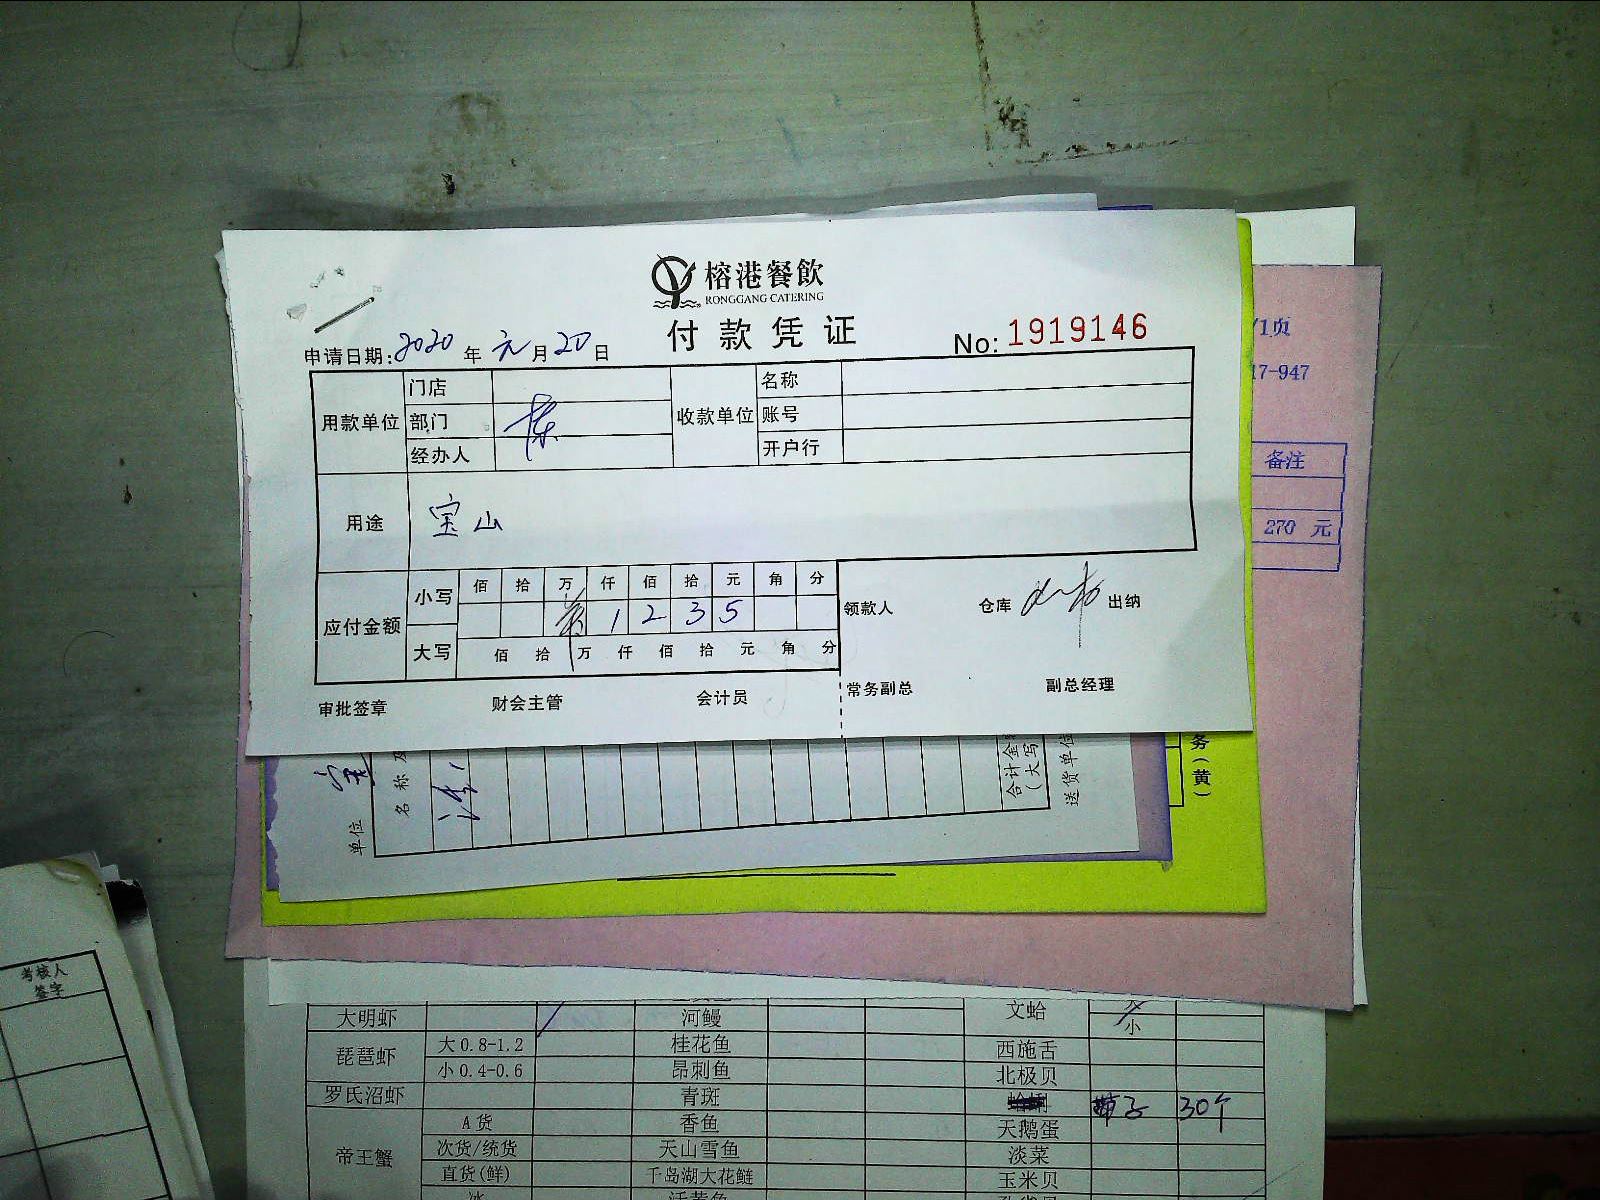 榕港餐飲
RONGGANG CATERING
付款凭证
申请日期:2020年元月20日
No:1919146
用款单位 门店 收款单位 名称
部门 账号
经办人 开户行
用途 宝山
应付金额 小写 佰 拾 万 仟 佰 拾 元 角 分
1 2 3 5
大写 佰 拾 万 仟 佰 拾 元 角 分
领款人 仓库 出纳
审批签章 财会主管 会计员 常务副总 副总经理
/1页
17-947
备注
270 元
务(黄)
单位
名称及
合计金
(大写
送货单位
考核人
签字
大明虾 河鳗 文蛤
小
琵琶虾 大0.8-1.2 桂花鱼 西施舌
小0.4-0.6 昂刺鱼 北极贝
罗氏沼虾 青斑 带子 30个
帝王蟹 A货 香鱼 天鹅蛋
次货/统货 天山雪鱼 淡菜
直货(鲜) 千岛湖大花鲢 玉米贝